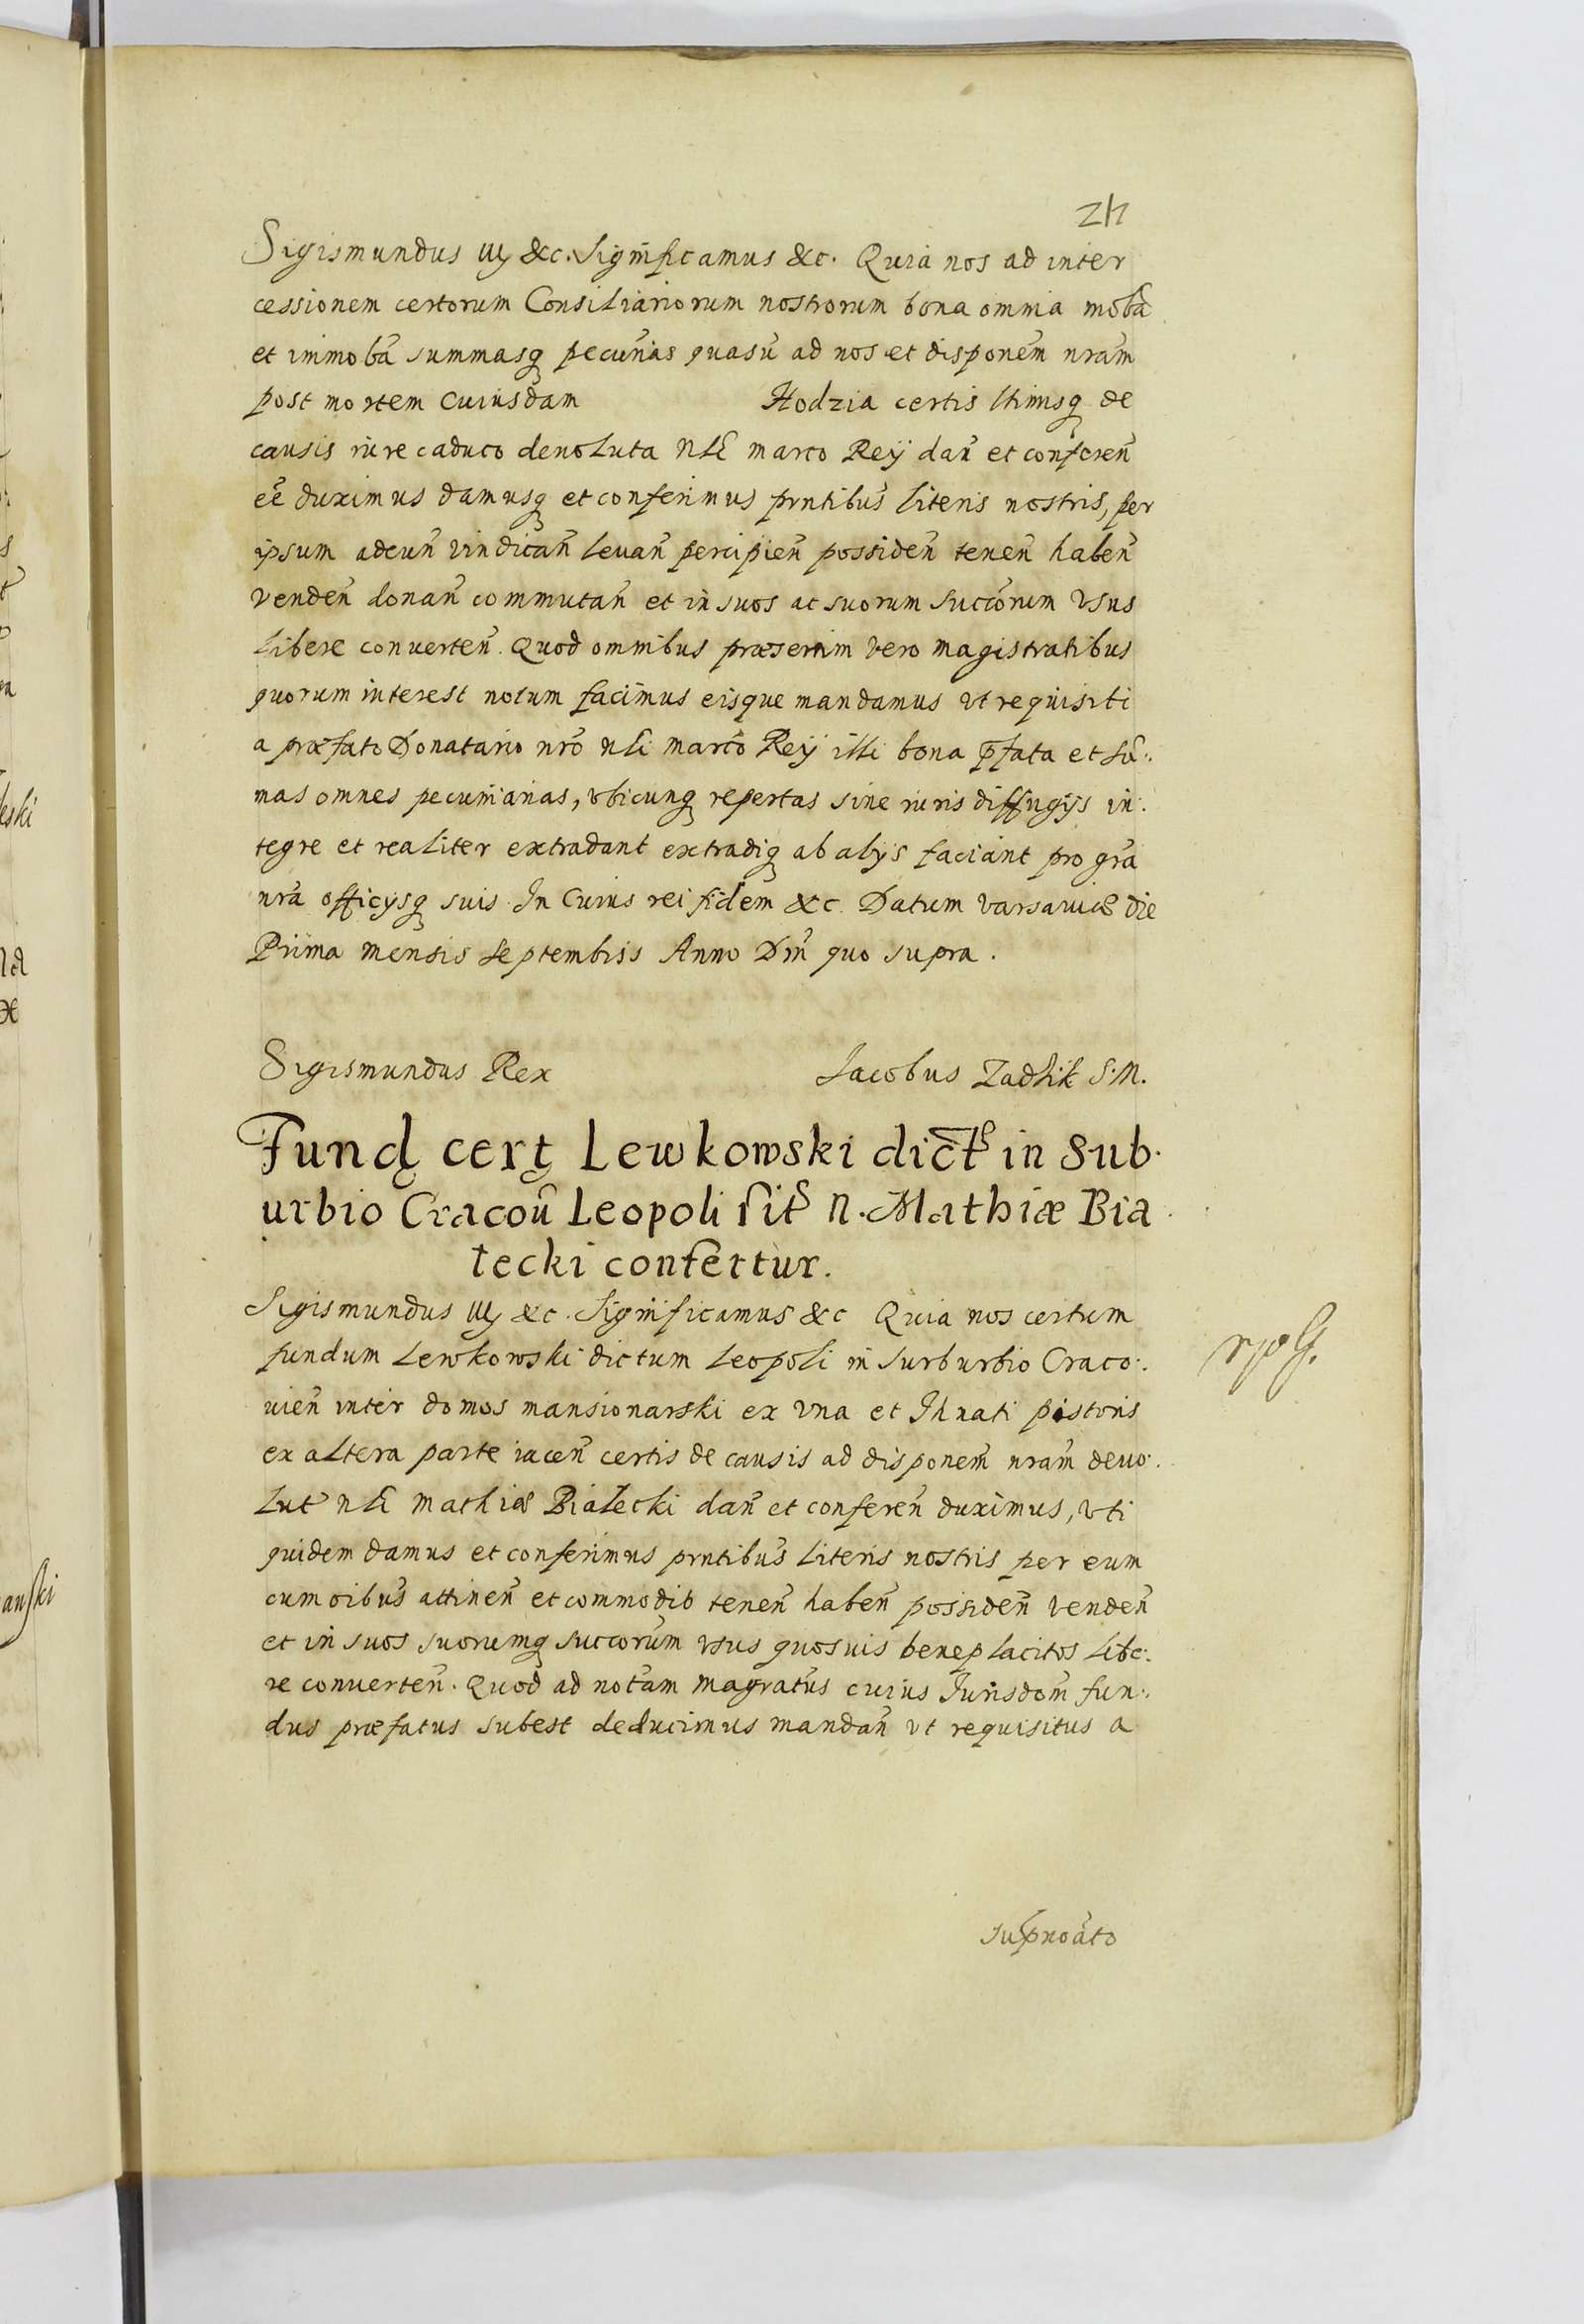 24
Sigismundus iij &c. Significamus &c. Quia nos ad inter
cessionem certorum Consiliariorum nostrorum bona omnia moba
et immoba summasq pecunias quasu ad nos et disponem nram
post mortem cuiusdam Hodzia certis ltimisq de
causis iure caduco deuoluta Nli marco Rey dan et conferen
ee duximus damusq et conferimus prntibus literis nostris, per
ipsum adeun vindican leuan percipien possiden tenen haben
venden donan commutan et in suos ac suorum succorum vsus
libere conuerten. Quod omnibus præsertim vero magistratibus
quorum interest notum facimus eisque mandamus vt requisiti
a præfato Donatario nro nli marco Rey illi bona pfata et sū:
mas omnes pecuniarias, vbicunq repertas sine iuris diffugijs in:
tegre et realiter extradant extradiq ab alijs faciant pro gra
nra officijsq suis. In Cuius rei fidem &c. Datum varsauiæ die
Prima mensis septembris Anno Dni quo supra.
Sigismundus Rex Jacobus Zadzik S.M.
Fundꝯ certꝯ Lewkowski dictꝯ in Sub.
urbio Cracoū Leopoli sitꝯ N. Mathiæ Bia
łecki confertur.
Sigismundus iij &c. Significamus &c Quia nos certum
fundum Lewkowski dictum Leopoli in surburbio Craco:
uien inter domos mansionarski ex vna et Ihnati pistoris
ex altera parte iacen certis de causis ad disponem nram deuo:
lut nli Mathiæ Białecki dan et conferen duximus, vti
quidem damus et conferimus prntibus literis nostris per eum
cum oibus attinen et commodib tenen haben possiden venden
et in suos suorumq succorum vsus quosuis beneplacitos libe:
re conuerten. Quod ad notam magratus cuius Jurisdom fun:
dus præfatus subest deducimus mandan vt requisitus a
supnoato